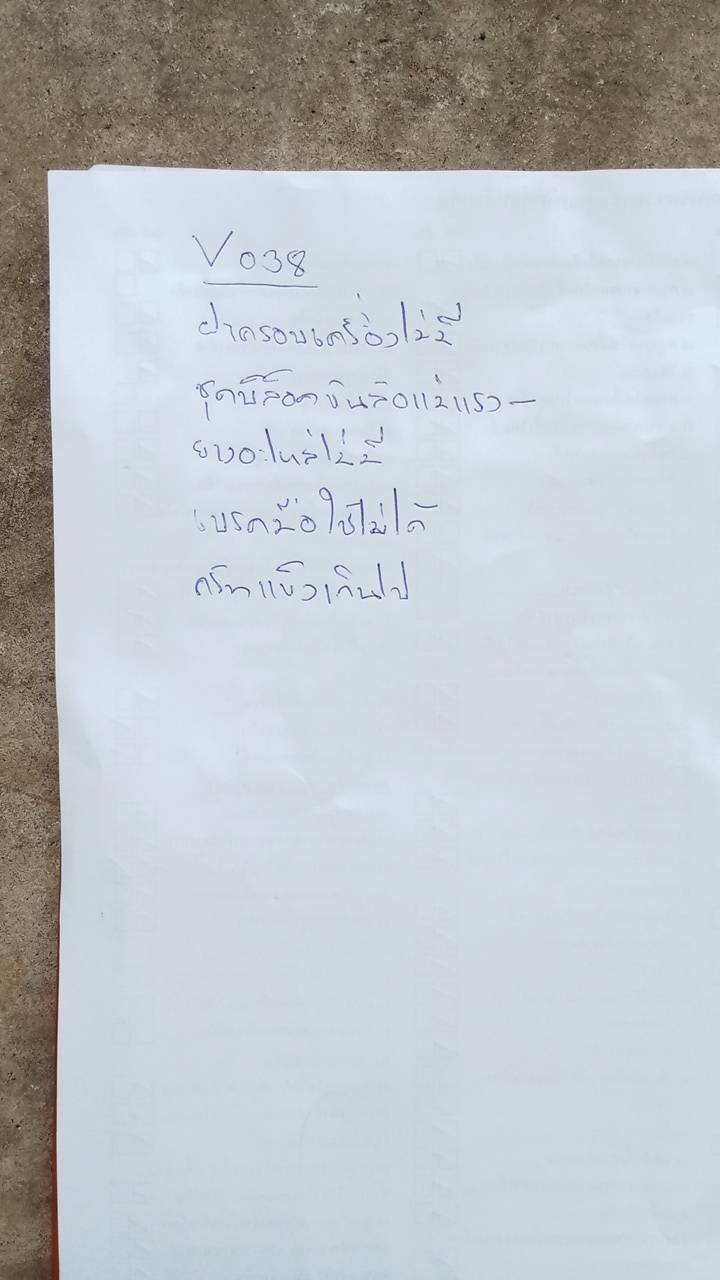 V 038
ฝาครอบเครื่องไม่มี
ชุดบล็อคขันล้อแม่แรง -
ยางอะไหล่ไม่มี
เบรคมือใช้ไม่ได้
ครัทแข็งเกินไป